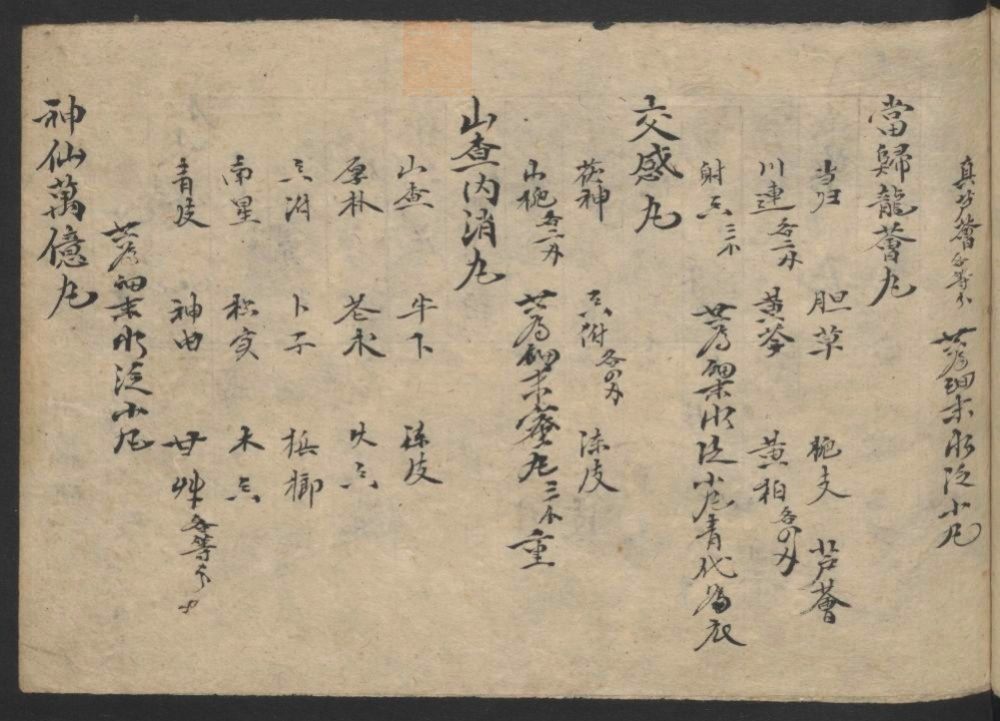 真芦薈各等分 共為細末水泛小丸
當歸龍薈丸
当归 胆草 梔子 芦薈
川連各二刄 黄芩 黄柏各四刄
射香三分 共為細末水泛小丸青代為衣
交感丸
茯神 香附各四刄 陳皮
山梔各二刄 共為細末蜜丸三分重
山查内消丸
山查 牛下 陳皮
厚朴 苍术 火香
香附 卜子 槟榔
南星 枳实 木香
青皮 神曲 甘艸各等分
共為细末水泛小丸
神仙萬億丸